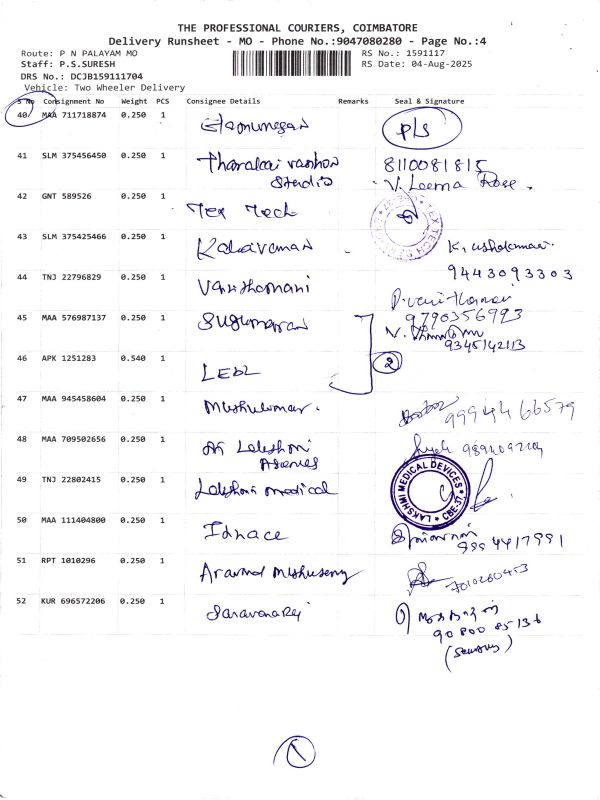 THE PROFESSIONAL COURIERS, COIMBATORE
Delivery Runsheet - MO - Phone No.:9047080280 - Page No.:4
Route: P N PALAYAM MO
RS No.: 1591117
Staff: P.S.SURESH
RS Date: 04-Aug-2025
DRS No.: DCJB159111704
Vehicle: Two Wheeler Delivery
S No Consignment No Weight PCS Consignee Details Remarks Seal & Signature
40 MAA 711718874 0.250 1 PLS
41 SLM 375456450 0.250 1 Studio 8110081815
V. Leema Rose.
42 GNT 589526 0.250 1 Tex Tech
43 SLM 375425466 0.250 1 Kalavamani
9443093303
44 TNJ 22796829 0.250 1 Vanithamani
45 MAA 576987137 0.250 1 Sugumaran 9790356993
9345142113
46 APK 1251283 0.540 1 2
47 MAA 945458604 0.250 1 Muthukumar. 99944 66579
48 MAA 709502656 0.250 1 Sri Lakshmi
49 TNJ 22802415 0.250 1 Lakshmi medical LAKSHMI MEDICAL DEVICES CBE-37
50 MAA 111404800 0.250 1
9994417991
51 RPT 1010296 0.250 1 Aravind 7010260453
52 KUR 696572206 0.250 1 Saravanaraj
90800 85136
1